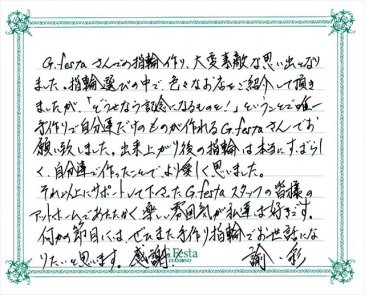 G.festaさんでの指輪作り、大変素敵な思い出となり
ました。指輪選びの中で、色々なお店をご紹介して頂き
ましたが、「どうせなら記念になるものを！」ということで唯一
手作りで自分達だけのものが作れるG.festaさんでお
願い致しました。出来上がり後の指輪は本当にすばらし
く、自分達で作ったことで、より愛しく思いました。
それ以上にサポートして下さったG.festaスタッフの皆様の
アットホームであたたかく楽しい雰囲気が私達は好きです。
何かの節目には、ぜひまた手作り指輪でお世話にな
りたいと思います。感謝!
G.Festa
諭・彩